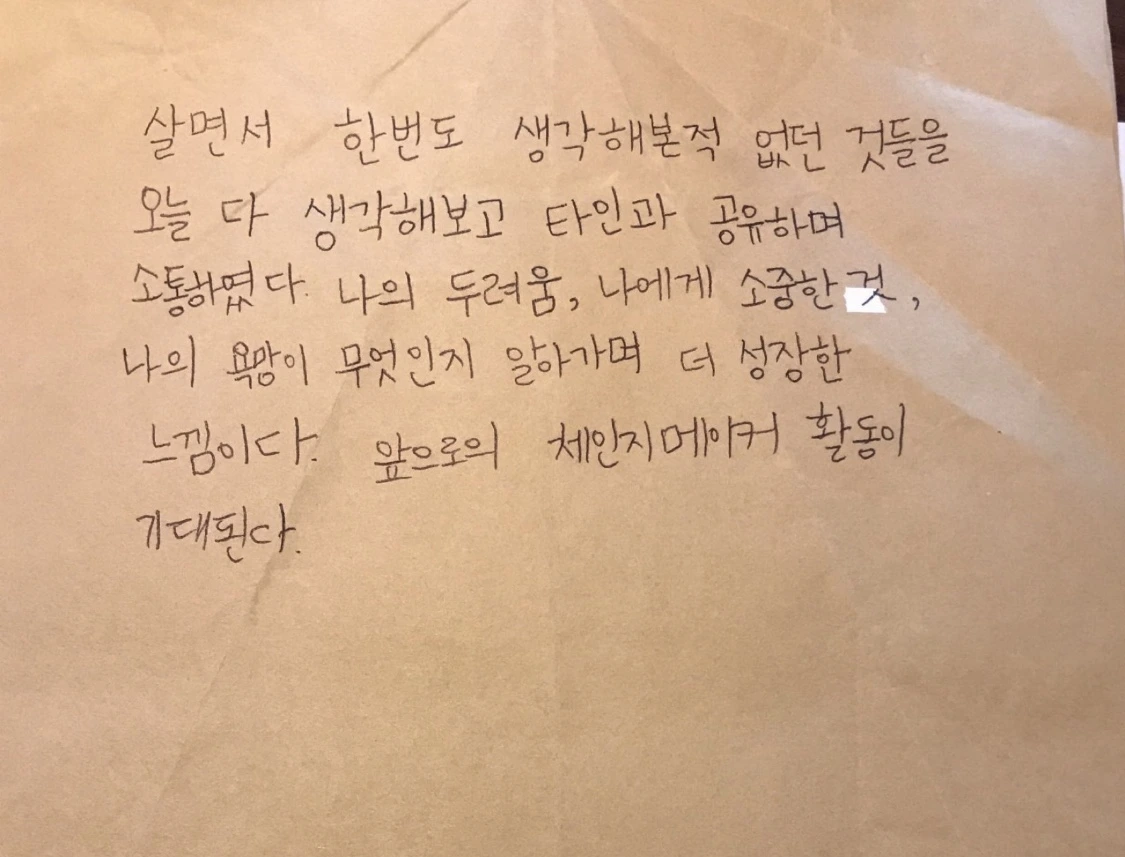 살면서 한번도 생각해본적 없던 것들을
오늘 다 생각해보고 타인과 공유하며
소통하였다. 나의 두려움, 나에게 소중한 것,
나의 욕망이 무엇인지 알아가며 더 성장한
느낌이다. 앞으로의 체인지메이커 활동이
기대된다.